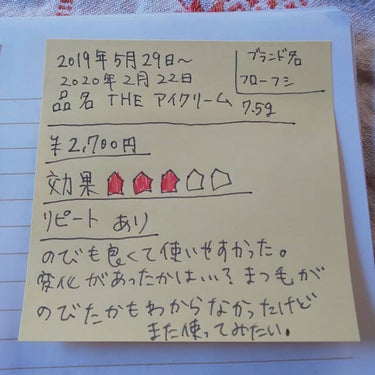 2019年5月29日～
2020年2月22日
ブランド名
フローフシ
品名 THE アイクリーム
7.5g
¥2,700円
効果
リピート あり
のびも良くて使いやすかった。
変化があったかは…? まつ毛が
のびたかもわからなかったけど
また使ってみたい。